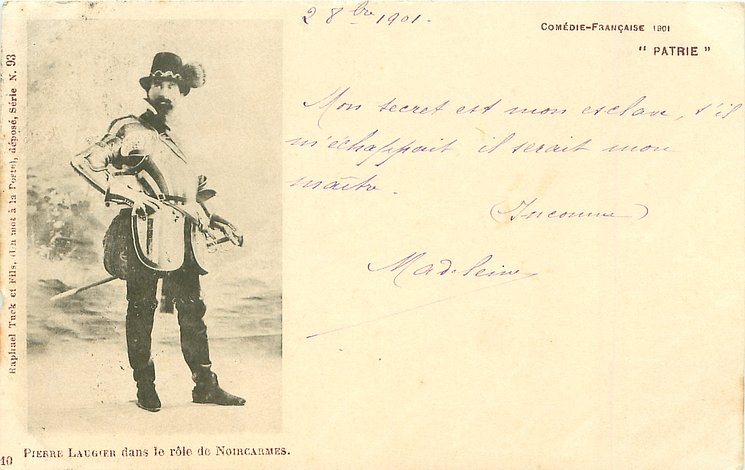 2 8bre 1901.
COMÉDIE-FRANÇAISE 1901
" PATRIE "
Mon secret est mon esclave, s'il
m'échappait il serait mon
maître.
(Inconnu)
Madeleine
Raphael Tuck et Fils, (Un mot à la Poste), déposé, Série N. 93
10
PIERRE LAUGIER dans le rôle de NOIRCARMES.